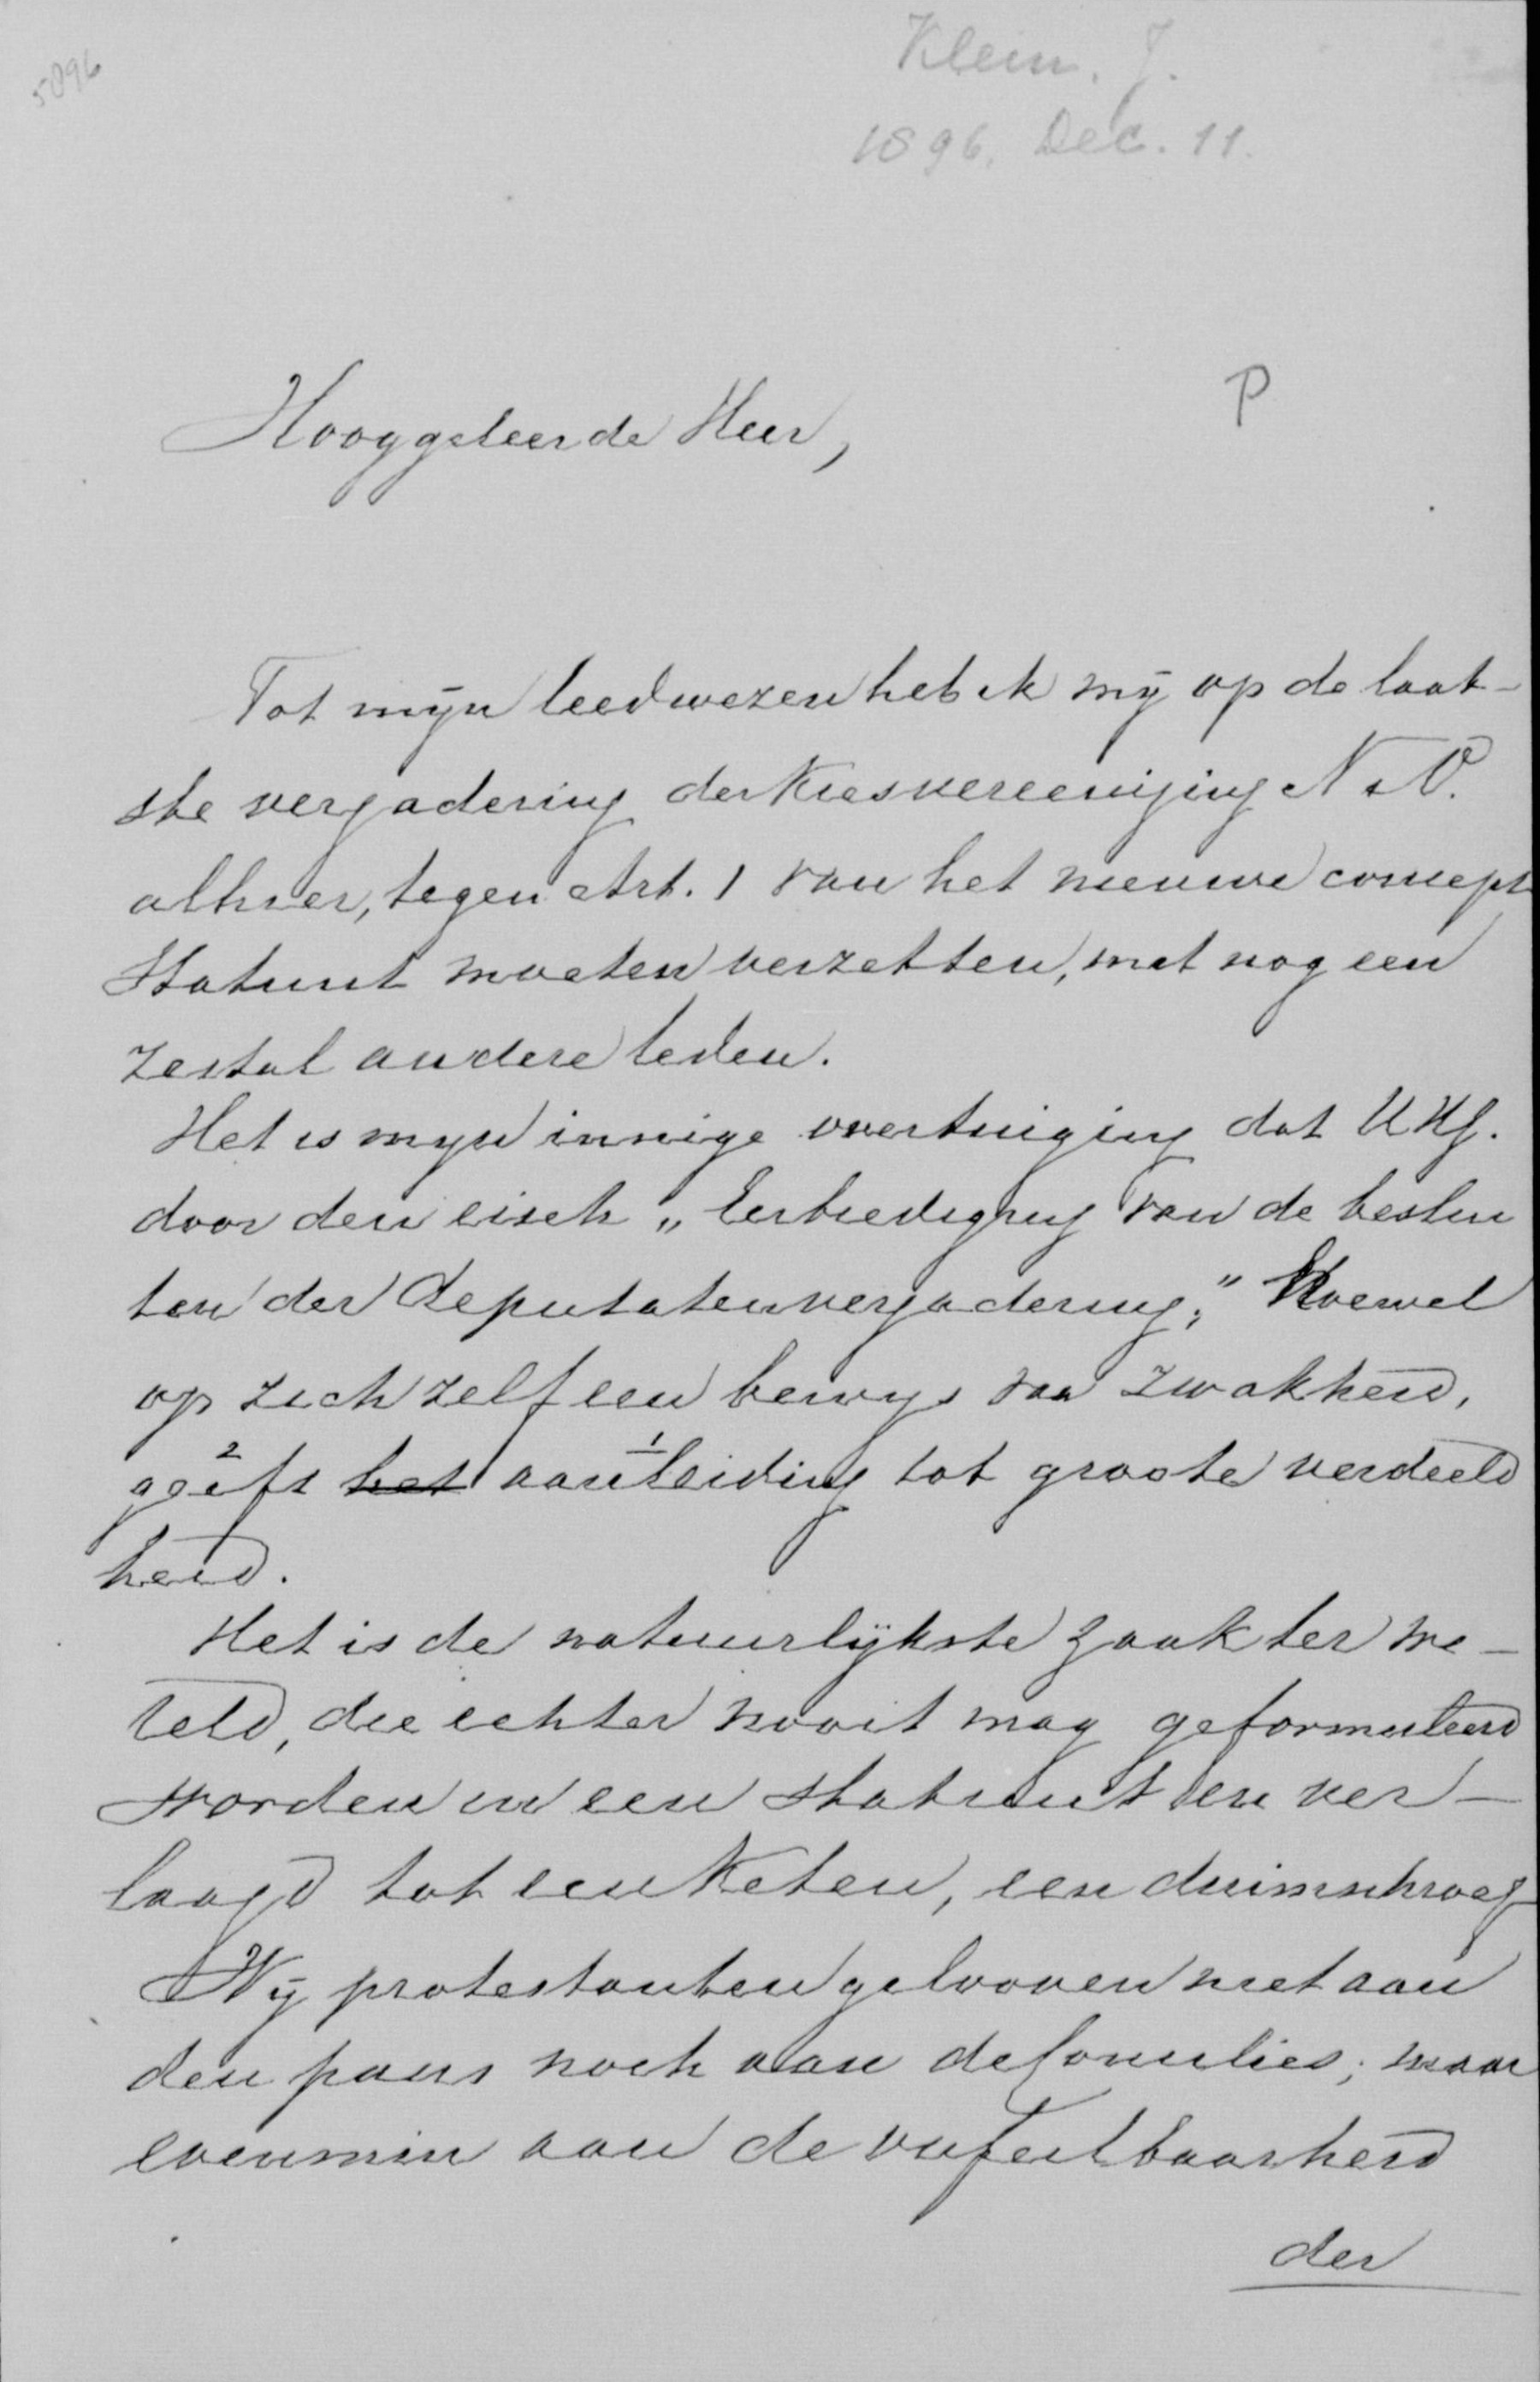 5896
Klein. J.
1896. Dec. 11.
P
Hooggeleerde Heer,
Tot mijn leedwezen heb ik mij op de laat-
ste vergadering der Kiesvereeniging N & O.
alhier, tegen Art. 1 van het nieuwe concept
Statuut moeten verzetten, met nog een
zestal andere leden.
Het is mijn innige overtuiging dat UHg.
door den eisch „Eerbiediging van de beslui
ten der deputatenvergadering;" Hoewel
op zich zelf een bewijs van zwakheid,
2 1
geeft het aanleiding tot groote verdeeld
heid.
Het is de natuurlijkste zaak ter we-
reld, die echter nooit mag geformuleerd
worden in een statuut en ver-
laagd tot een Keten, een duimschroef
Wij protestanten gelooven niet aan
den paus noch aan de Concilies; maar
evenmin aan de onfeilbaarheid
der